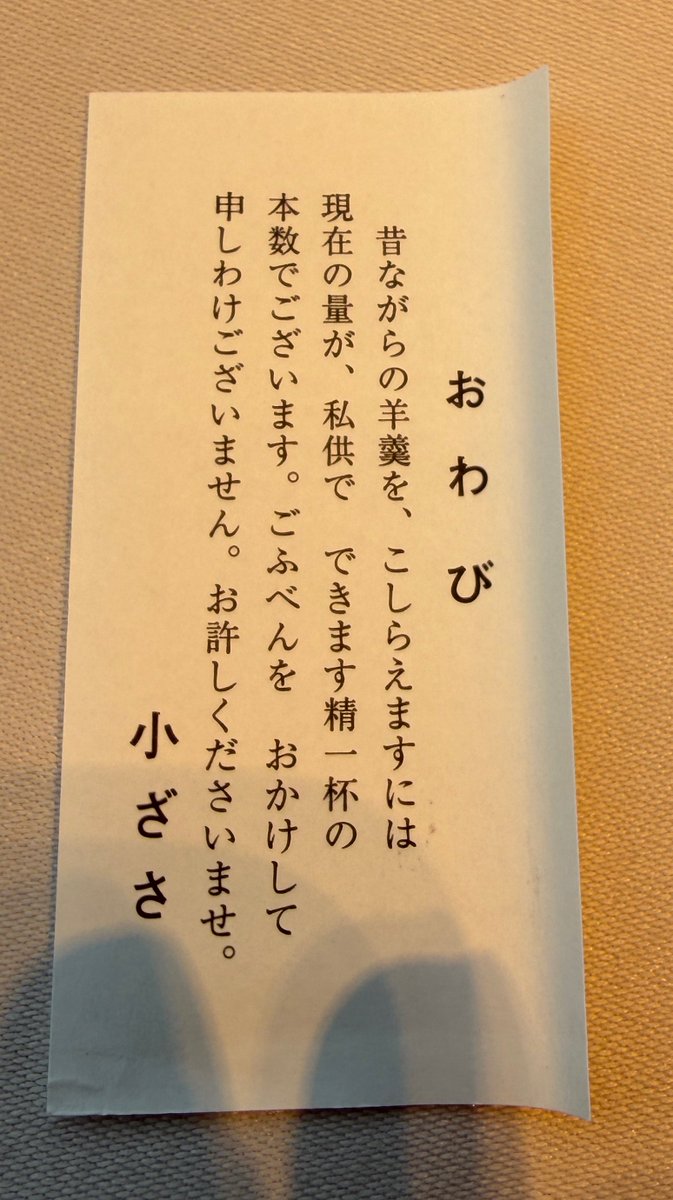 おわび
昔ながらの羊羹を、こしらえますには
現在の量が、私供で　できます精一杯の
本数でございます。ごふべんを　おかけして
申しわけございません。お許しくださいませ。
小ざさ